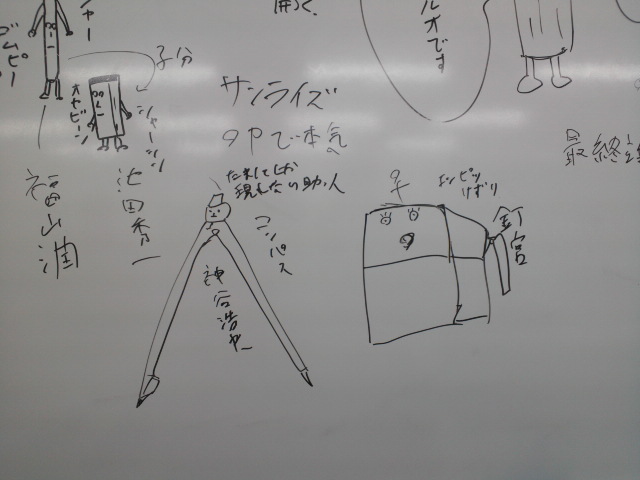 開く.
ルオです
子分
シャーシン
オヤビーン
サンライズ
夕中で本気
たまにしか
現れない助っ人
コンパス
エンピツ
けずり
釘宮
最終
福山潤
池田秀一
神谷浩史